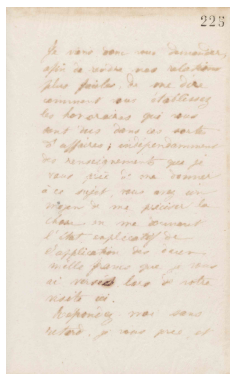 225
Je vous vous demander,
afin de rendre nos relations
plus faciles, de me dire
comment vous établissez
les honoraires qui vous
sont dus dans ces sortes
d'affaires; indépendamment
des renseignements que je
vous prie de me donner
à ce sujet vous avez un
moyen de me préciser la
chose en me donnant
l'état explicatif de
l'application des
mille francs que je vous
ai versés lors de votre
visite ici.
Répondez moi sans
retard, je vous prie, et